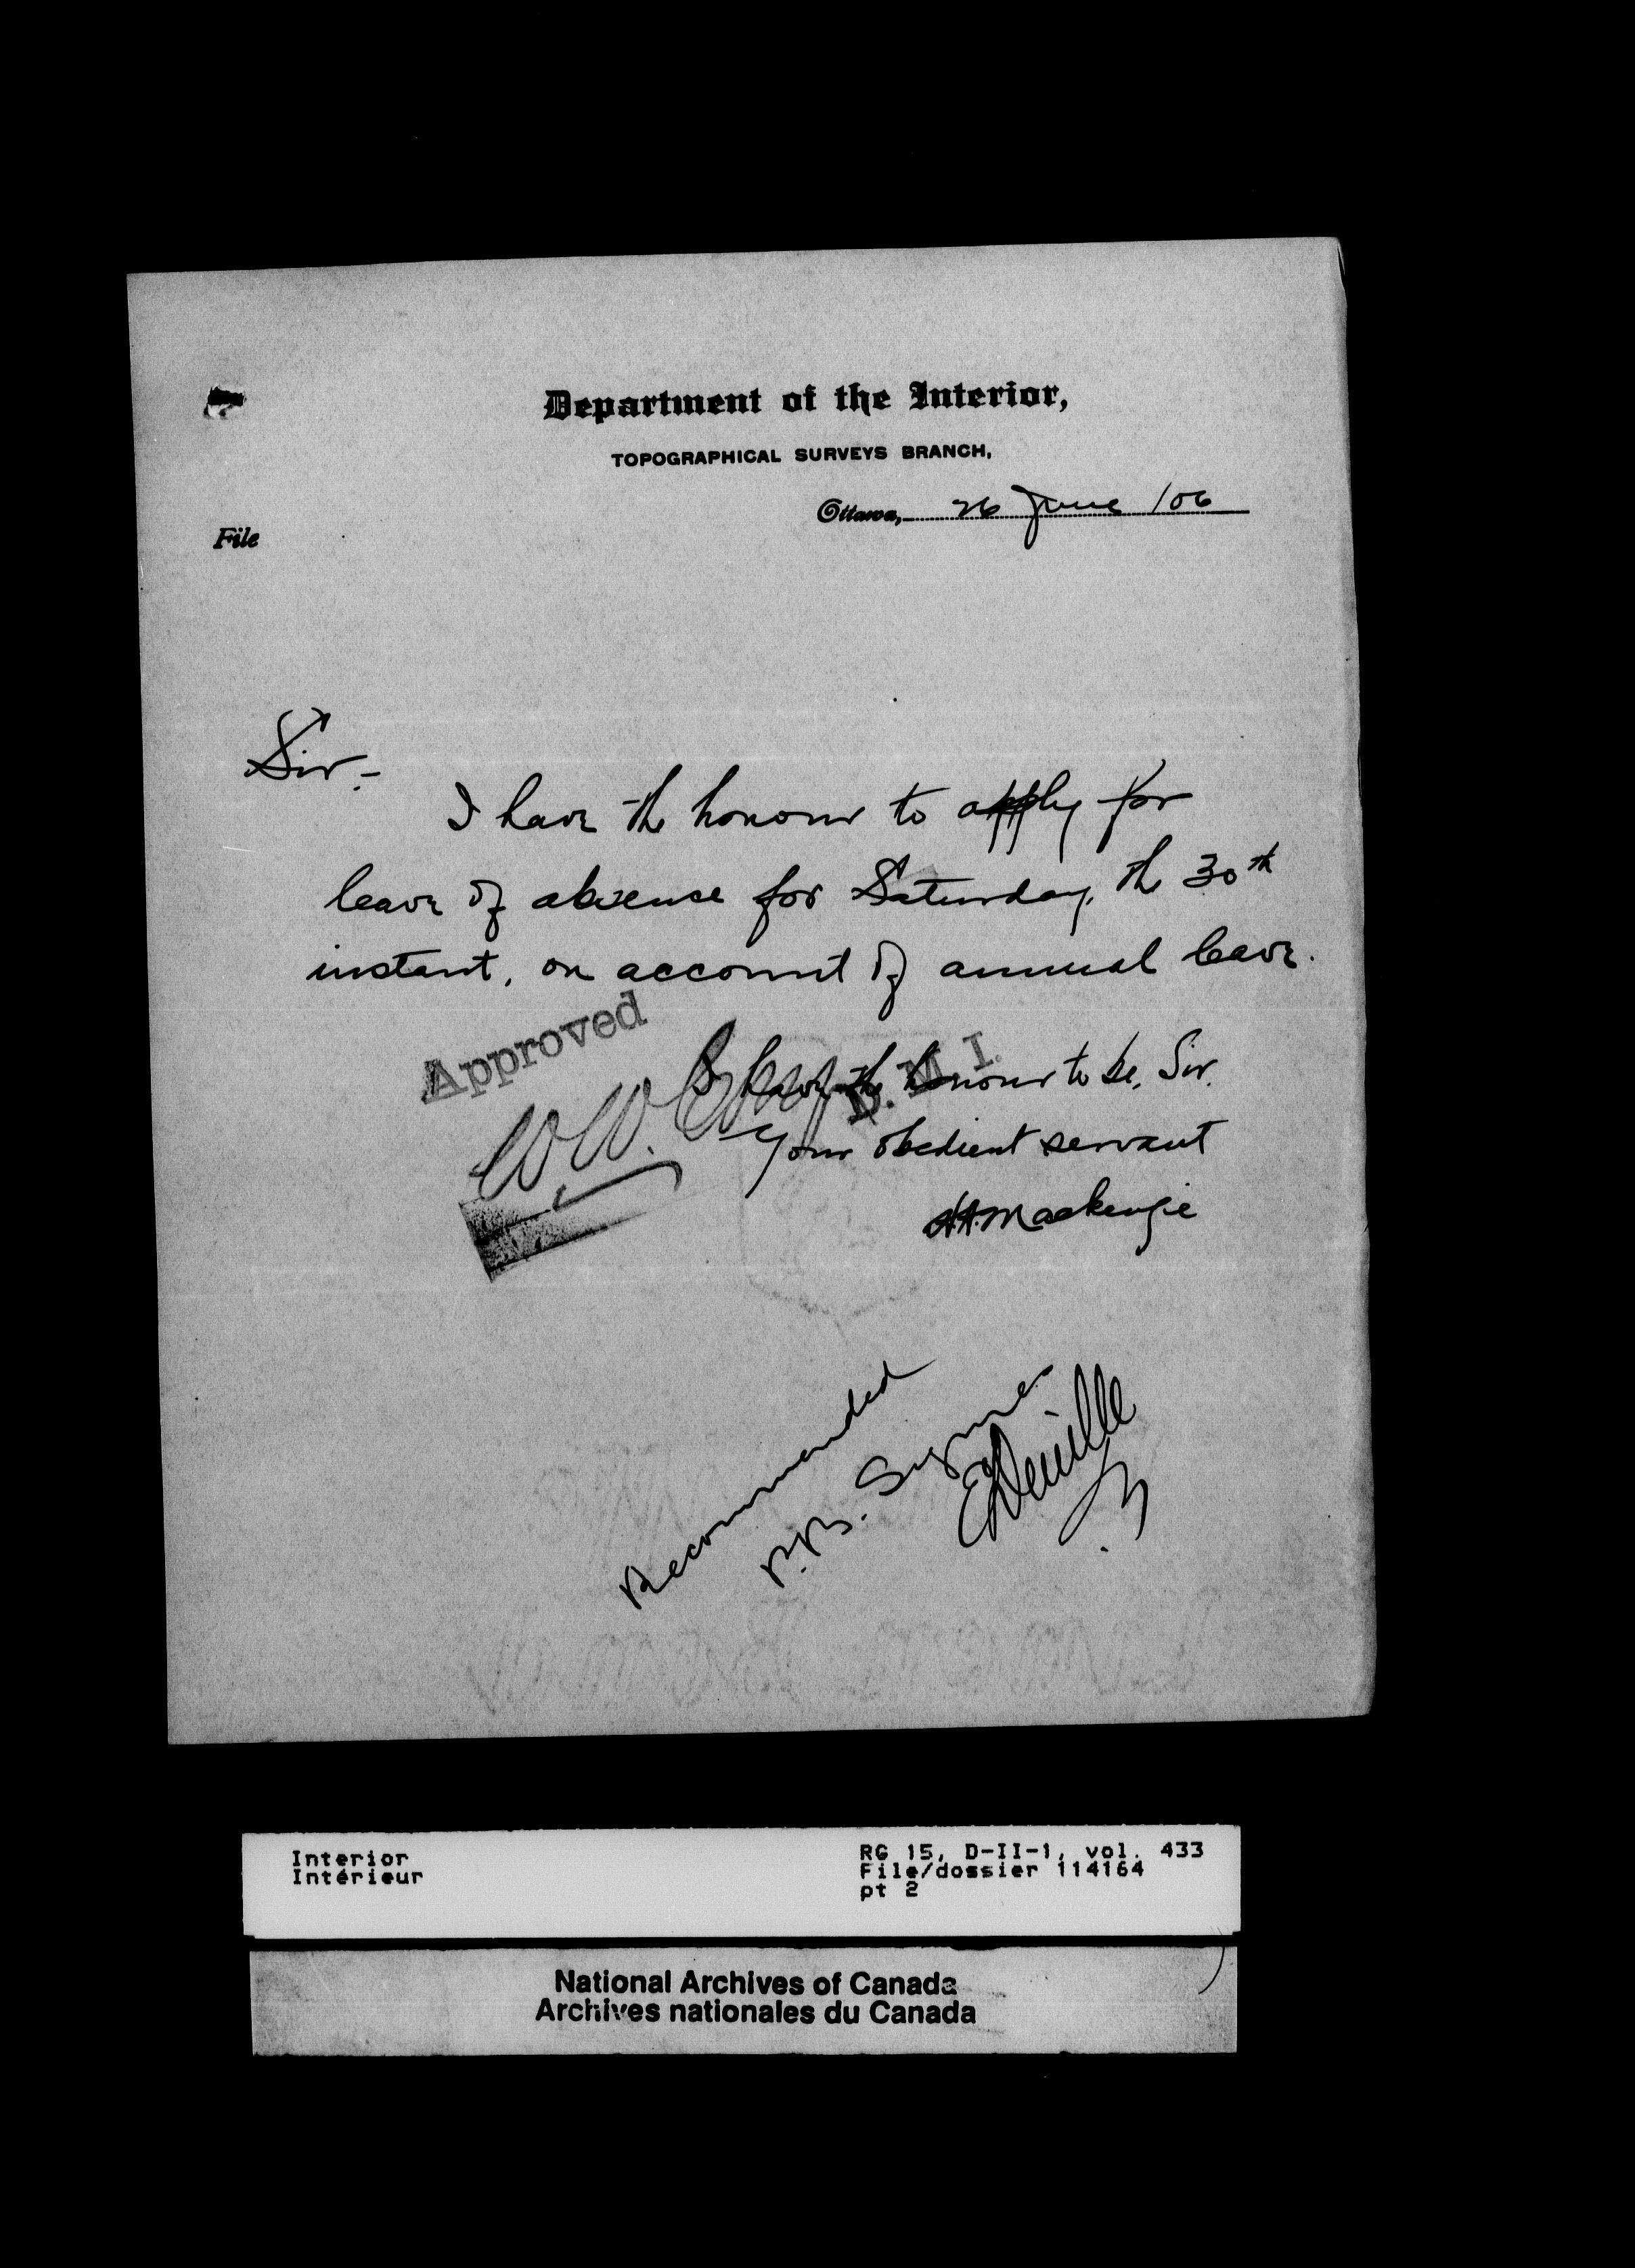 Department of the Interior,
TOPOGRAPHICAL SURVEYS BRANCH,
Ottawa, 26 June /06
File
Sir –
I have the honour to apply for
leave of absence for Saturday, the 30th
instant, on account of annual leave.
Approved
W W. Cory
D. M. I.
I have the honour to be, Sir,
Your obedient servant
HA. Mackenzie
Recommended
P.B. Symes
E Deville
Interior
Intérieur
RG 15, D-II-1, vol. 433
File/dossier 114164
pt 2
National Archives of Canada
Archives nationales du Canada